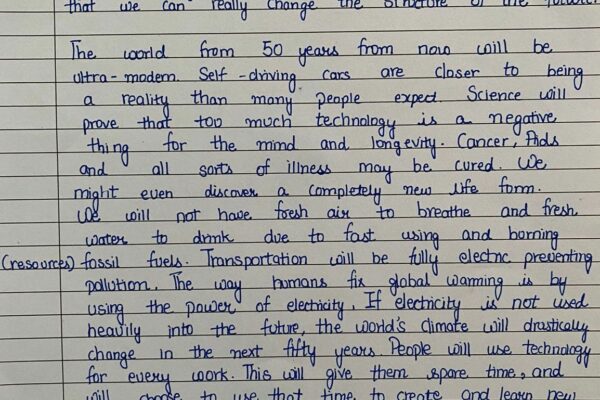 that we can really change the structure of the future.
The world from 50 years from now will be
ultra-modern. Self-driving cars are closer to being
a reality than many people expect. Science will
prove that too much technology is a negative
thing for the mind and longevity. Cancer, Aids
and all sorts of illness may be cured. We
might even discover a completely new life form.
We will not have fresh air to breathe and fresh
water to drink due to fast using and burning
(resources) fossil fuels. Transportation will be fully electric preventing
pollution. The way humans fix global warming is by
using the power of electricity. If electricity is not used
heavily into the future, the world's climate will drastically
change in the next fifty years. People will use technology
for every work. This will give them spare time, and
will choose to use that time to create and learn new